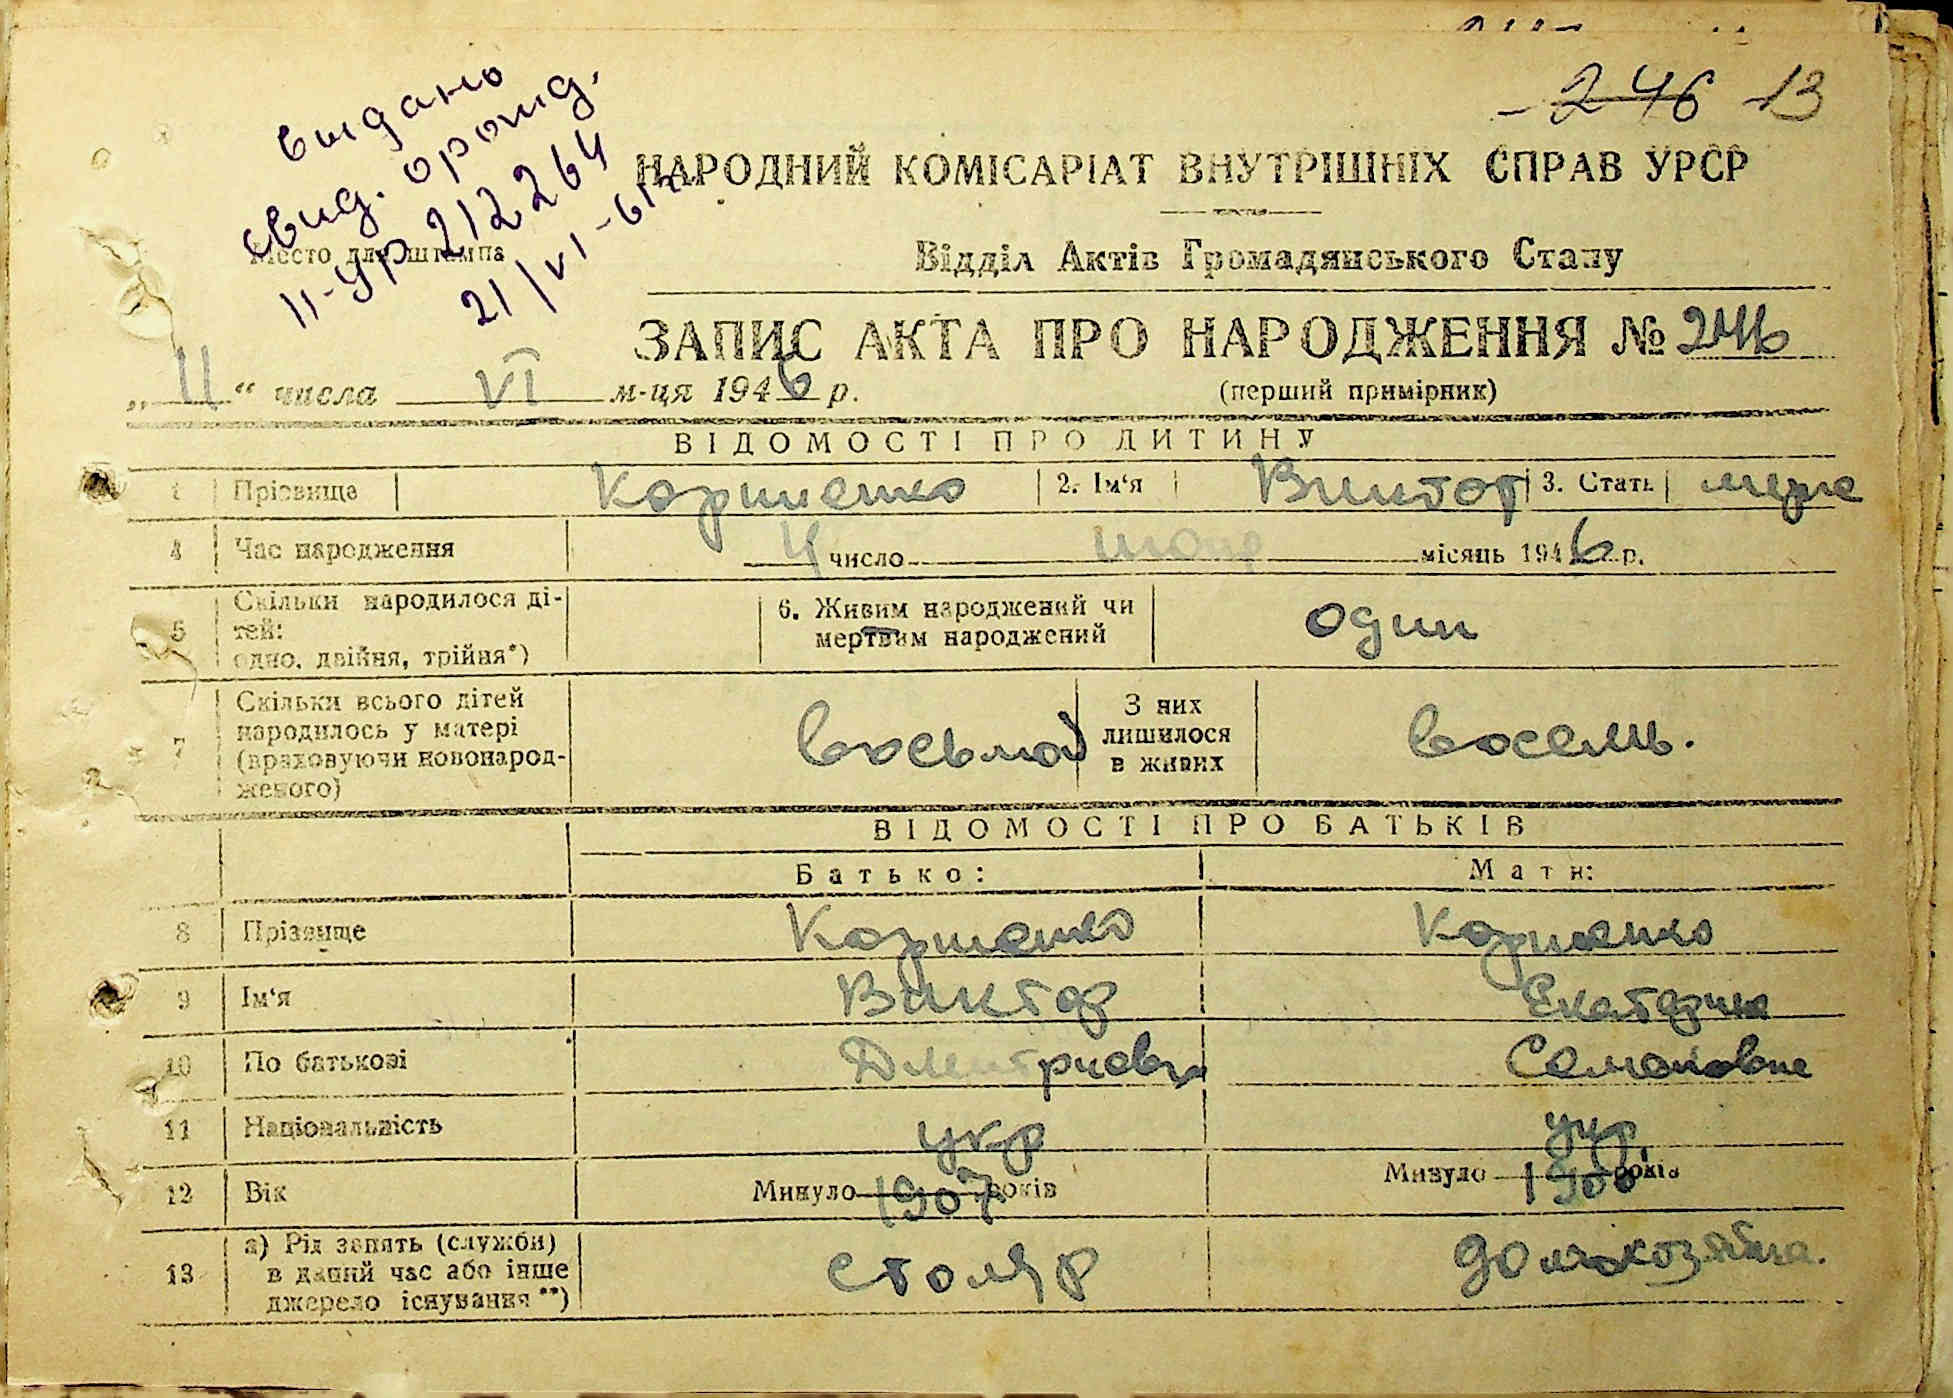 246 13
выдано
свид. о рожд.
II-УР 212264
21/VI-61г.
НАРОДНИЙ КОМІСАРІАТ ВНУТРІШНІХ СПРАВ УРСР
Место для штампа
Відділ Актів Громадянського Стану
ЗАПИС АКТА ПРО НАРОДЖЕННЯ № 246
„11“ числа VI м-ця 1946 р. (перший примірник)
ВІДОМОСТІ ПРО ДИТИНУ
1 Прізвище Коржненко 2. Ім‘я Виктор 3. Стать муж
4 Час народження 4 число місяць 1946 р.
5 Скільки народилося ді-
тей:
одно, двійня, трійня*)
6. Живим народжений чи
мертвим народжений
один
7 Скільки всього дітей
народилось у матері
(враховуючи новонарод-
женого)
восьмой
З них
лишилося
в живих
восемь.
ВІДОМОСТІ ПРО БАТЬКІВ
Батько: Мати:
8 Прізвище Коржненко Коржненко
9 Ім‘я Виктор Екатерина
10 По батькові Дмитриевич Семеновна
11 Національність укр укр
12 Вік Минуло 1907 років Минуло 1906 років
13 а) Рід занять (служби)
в даний час або інше
джерело існування**)
столяр домохозяйка.